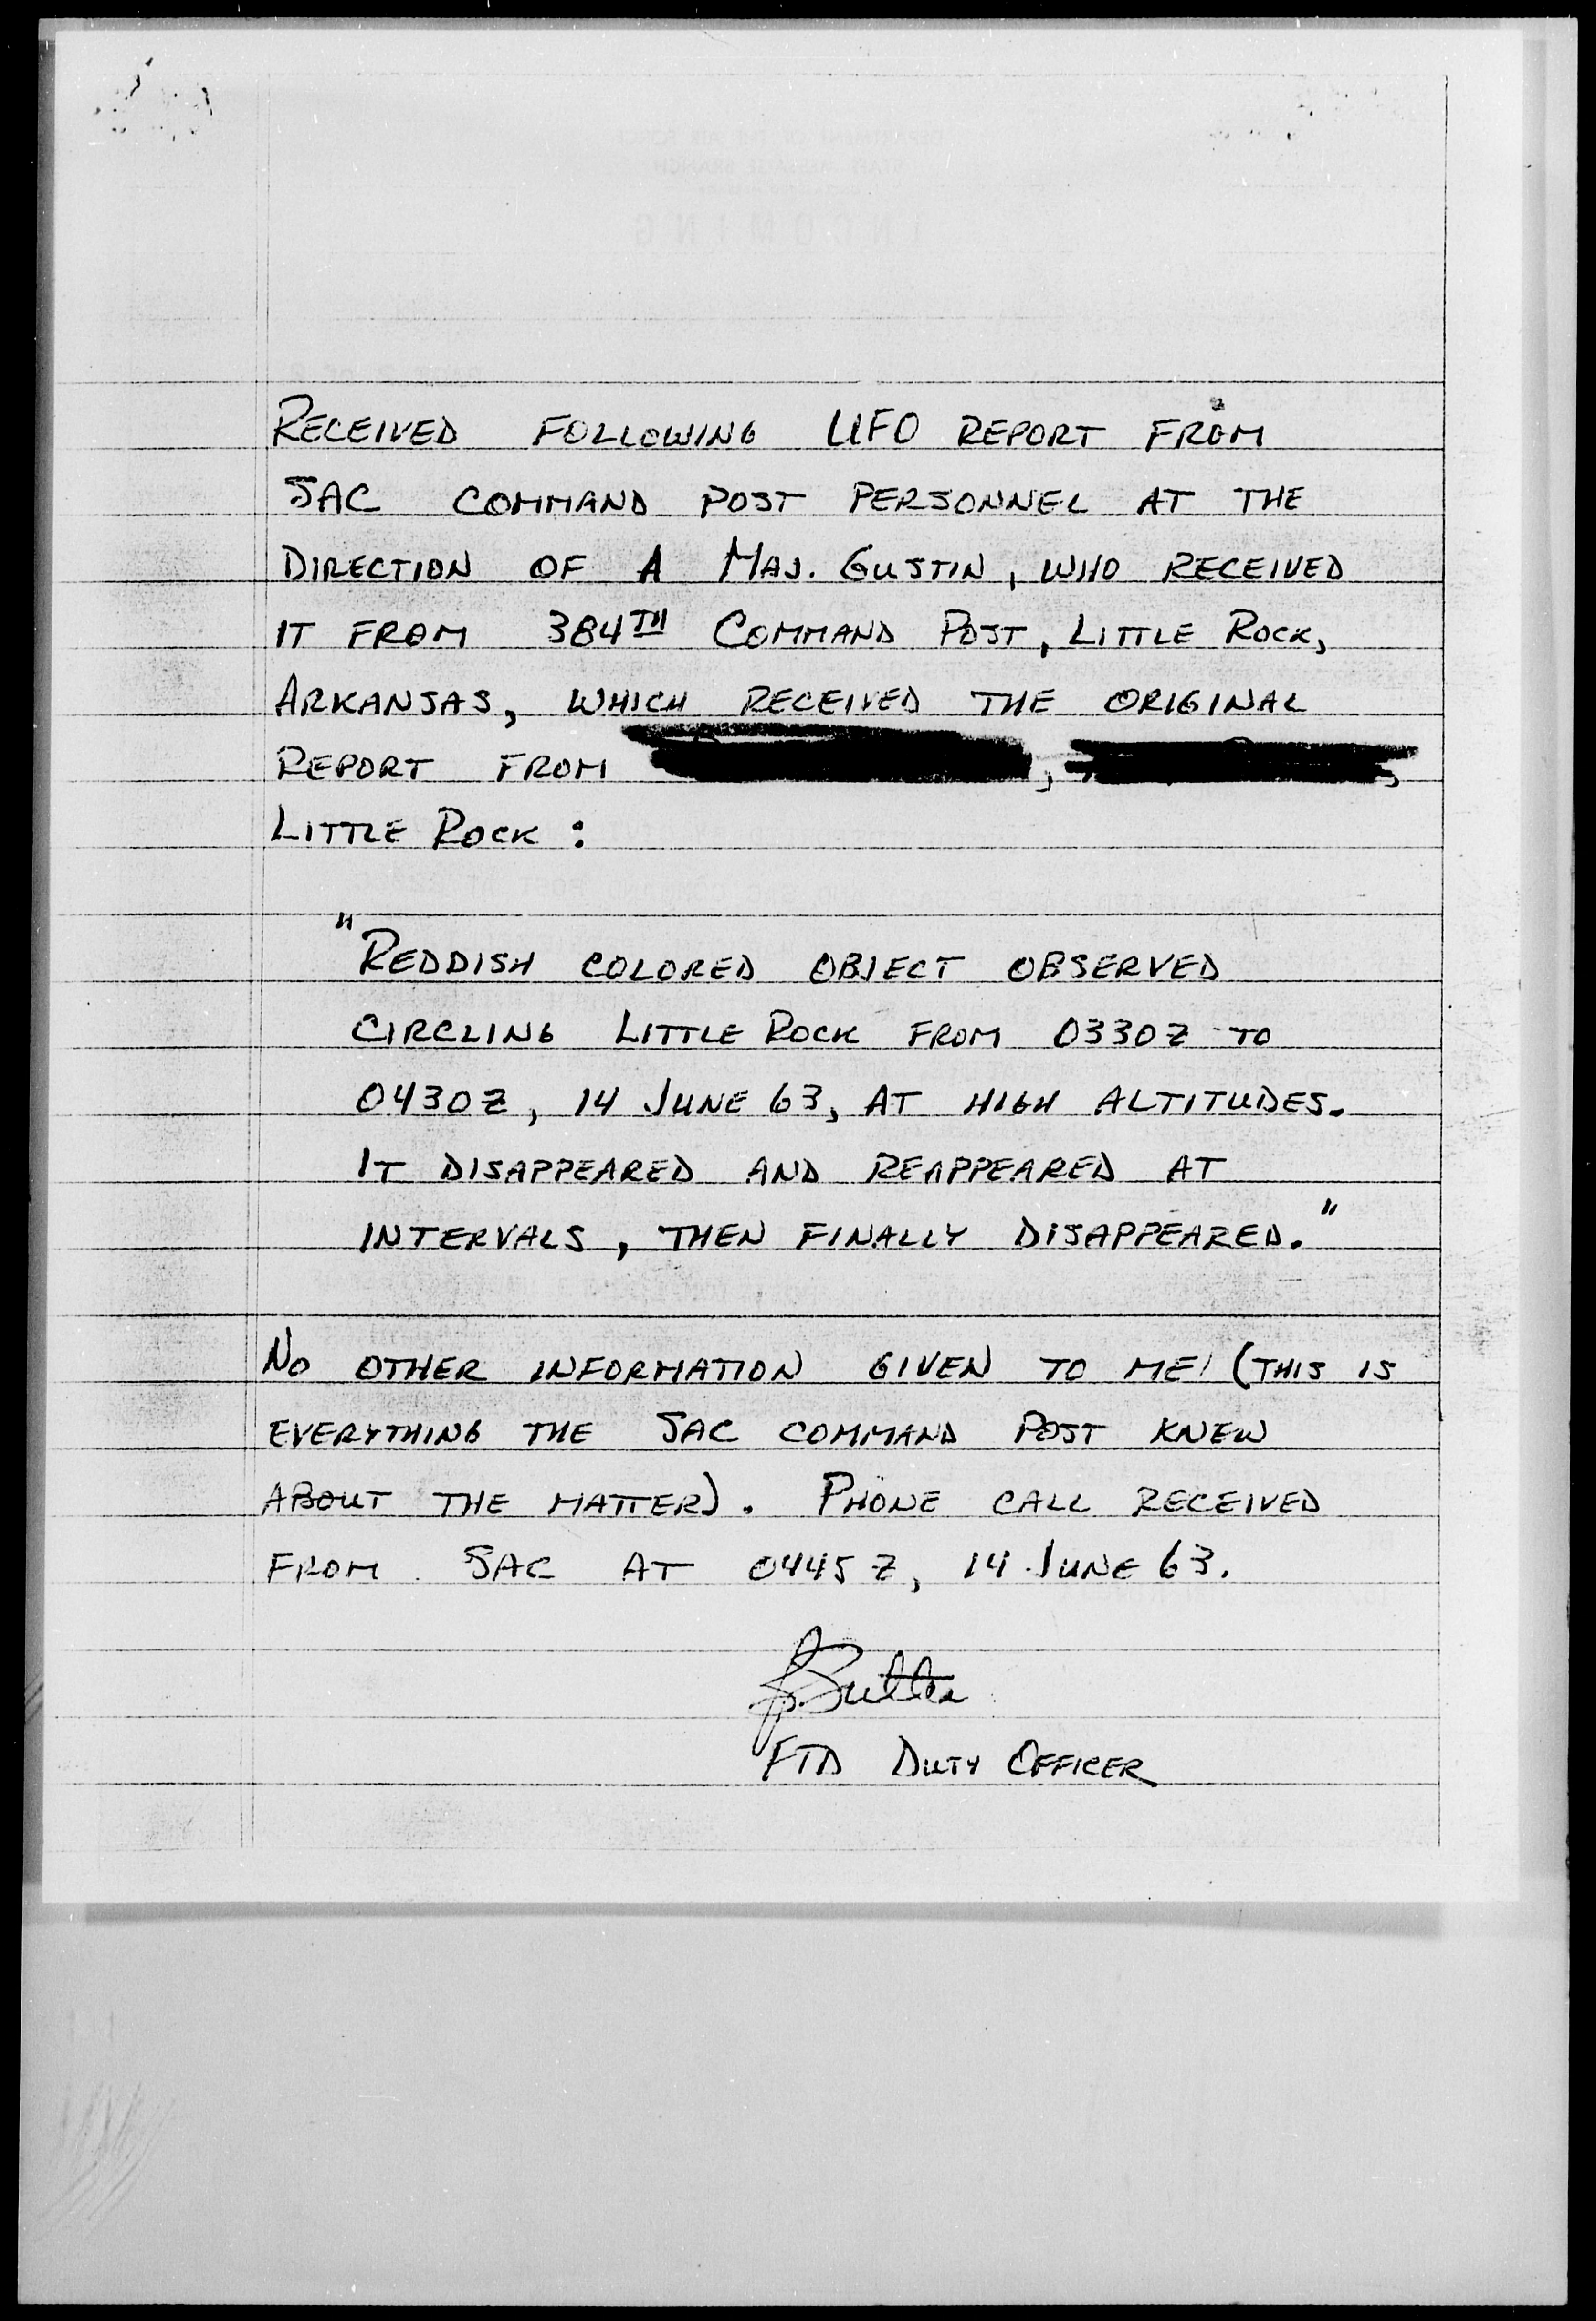 RECEIVED FOLLOWING UFO REPORT FROM
SAC COMMAND POST PERSONNEL AT THE
DIRECTION OF A MAJ. GUSTIN, WHO RECEIVED
IT FROM 384TH COMMAND POST, LITTLE ROCK,
ARKANSAS, WHICH RECEIVED THE ORIGINAL
REPORT FROM , ,
LITTLE ROCK:
"REDDISH COLORED OBJECT OBSERVED
CIRCLING LITTLE ROCK FROM 0330Z TO
0430Z, 14 JUNE 63, AT HIGH ALTITUDES.
IT DISAPPEARED AND REAPPEARED AT
INTERVALS, THEN FINALLY DISAPPEARED."
NO OTHER INFORMATION GIVEN TO ME! (THIS IS
EVERYTHING THE SAC COMMAND POST KNEW
ABOUT THE MATTER). PHONE CALL RECEIVED
FROM SAC AT 0445Z, 14 JUNE 63.
FTD DUTY OFFICER